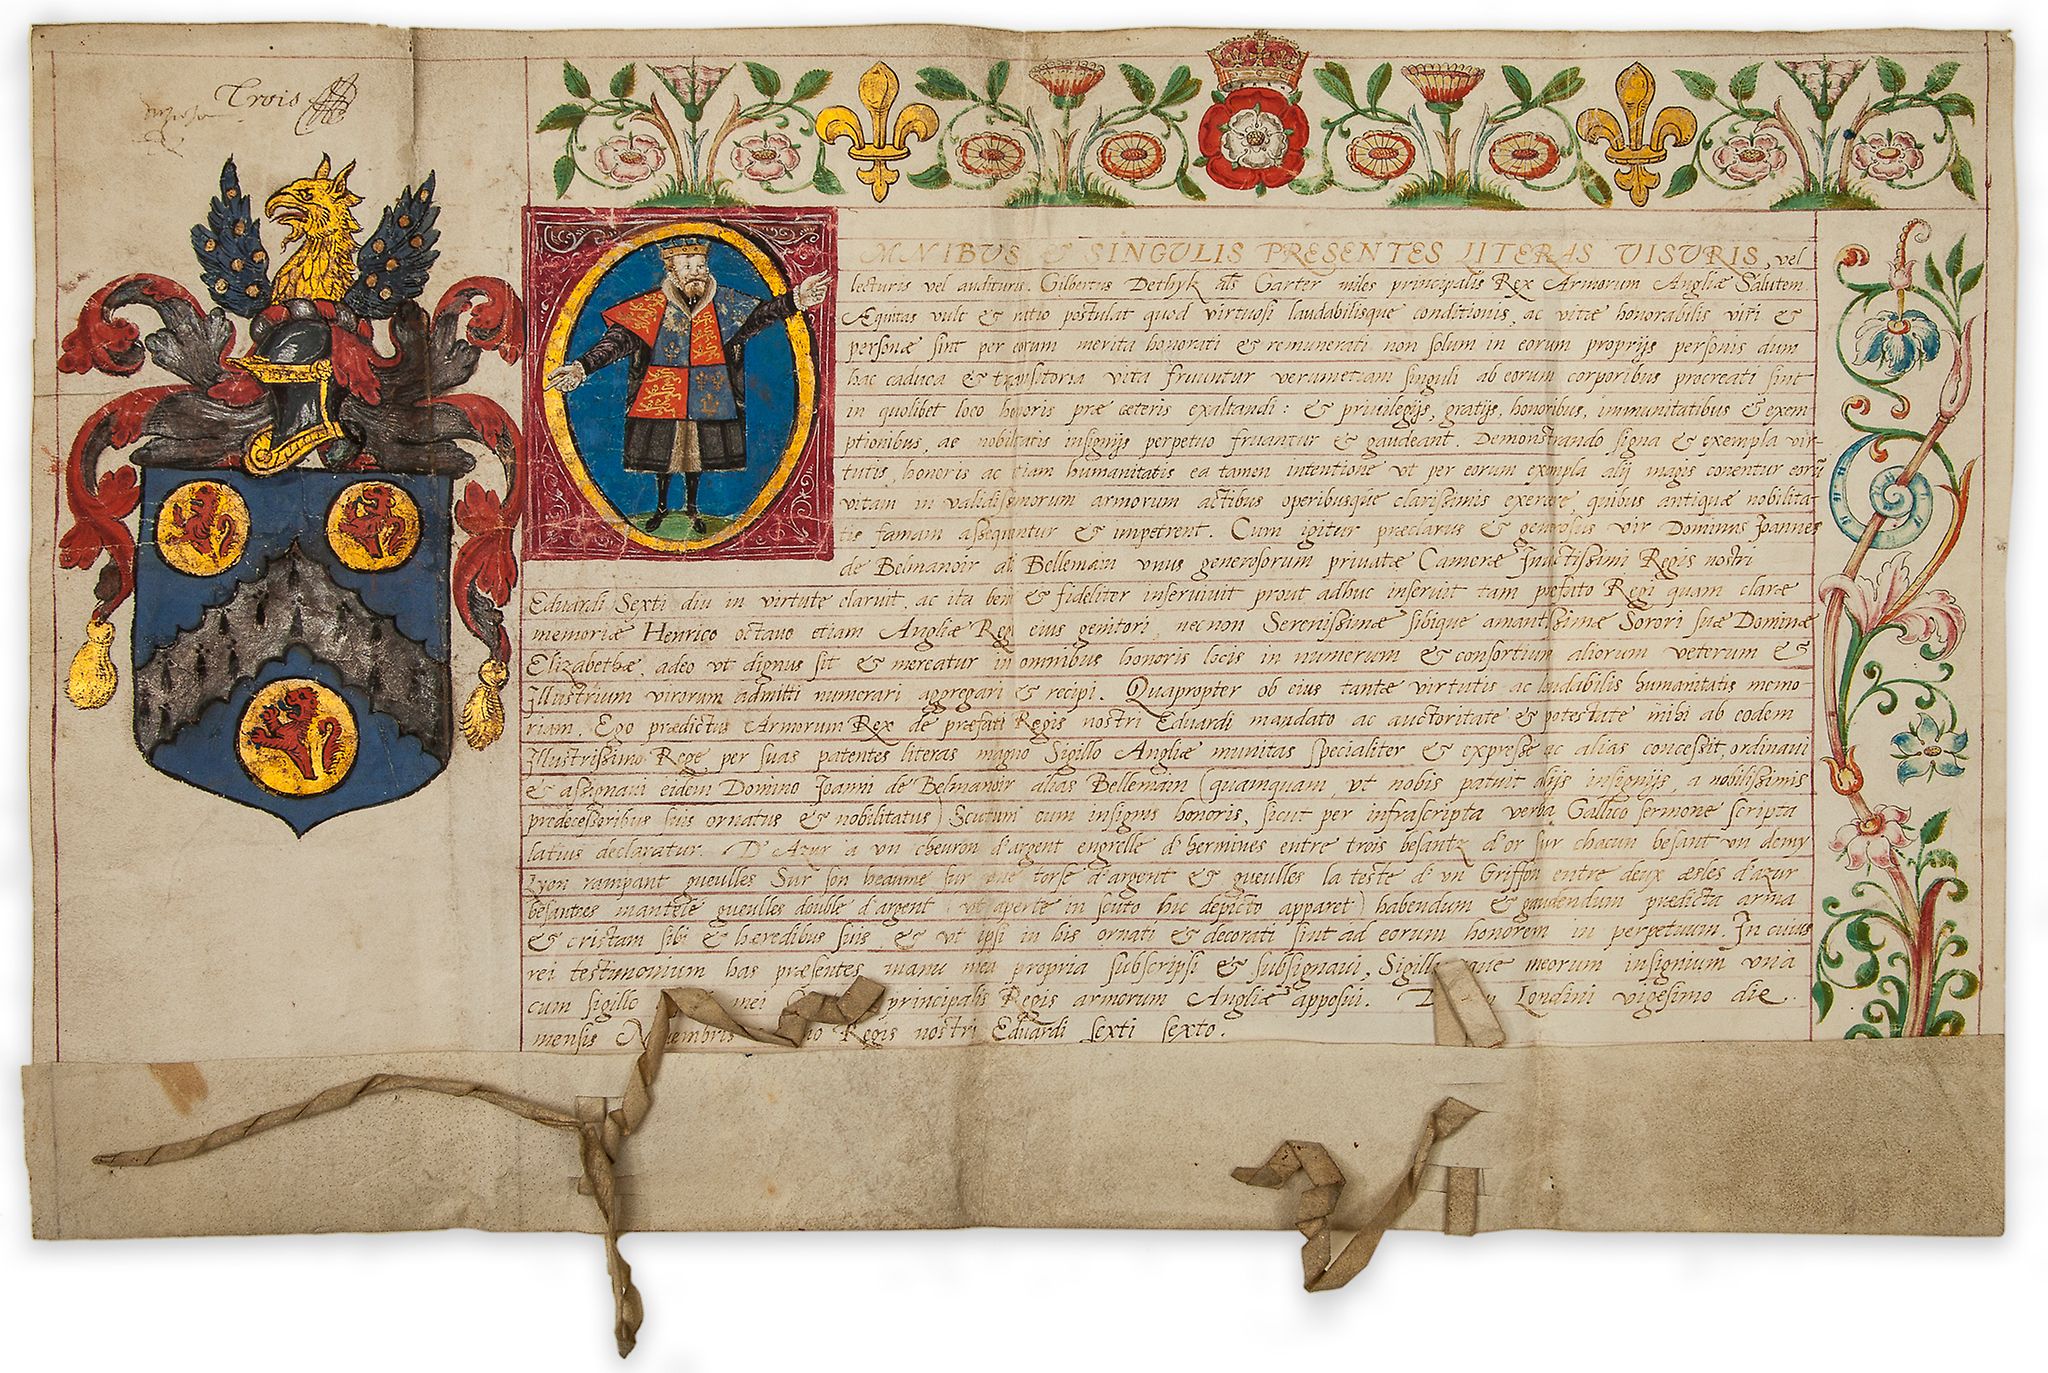 Trois
OMNIBUS & SINGULIS PRESENTES LITERAS VISURIS, vel
lecturis vel audituris. Gilbertus Dethyk als Garter miles principalis Rex Armorum Angliæ Salutem.
Æquitas vult & ratio postulat quod virtuosi laudabilisque conditionis, ac vitæ honorabilis viri &
personæ sint per eorum merita honorati & remunerati non solum in eorum proprijs personis dum
hac caduca & transitoria vita fruuntur verumetiam singuli ab eorum corporibus procreati sint
in quolibet loco honoris præ cæteris exaltandi: & privilegijs, gratijs, honoribus, immunitatibus & exem-
ptionibus, ac nobilitatis insignijs perpetuo fruantur & gaudeant. Demonstrando signa & exempla vir-
tutis, honoris ac etiam humanitatis ea tamen intentione vt per eorum exempla alij magis conentur eorū
vitam in validissimorum armorum actibus operibusque clarissimis exerere, quibus antiquæ nobilita-
tis famam assequuntur & impetrent. Cum igitur præclarus & generosus vir Dominus Joannes
de Belmanoir als Bellemain vnus generosorum privatæ Cameræ Invictissimi Regis nostri
Eduardi Sexti diu in virtute claruit, ac ita bene & fideliter inservivit prout adhuc inservit tam præfato Regi quam claræ
memoriæ Henrico octavo etiam Angliæ Regi eius genitori, necnon Serenissimæ sibique amantissimæ Sorori suæ Dominæ
Elizabethæ, adeo vt dignus sit & mereatur in omnibus honoris locis in numerum & consortium aliorum veterum &
Illustrium virorum admitti numerari aggregari & recipi. Quapropter ob eius tantæ virtutis ac laudabilis humanitatis memo
riam, Ego prædictus Armorum Rex de præfati Regis nostri Eduardi mandato ac auctoritate & potestate mihi ab eodem
Illustrissimo Rege per suas patentes literas magno Sigillo Angliæ munitas specialiter & expresse ac alias concessit ordinavi
& assignavi eidem Domino Joanni de Belmanoir alias Bellemain (quamquam, vt nobis patuit alijs insignijs, a nobilissimis
predecessoribus suis ornatus & nobilitatus) Scutum cum insignijs honoris, sicut per infrascripta verba Gallico sermone scripta
latius declaratur. D'Azur a vn cheuron d'argent engrelle d'hermines entre trois besantz d'or sur chacun besant vn demy
Lyon rampant gueulles Sur son heaume sur vne torse d'argent & gueulles la teste d'vn Griffon entre deux æsles d'azur
besantées mantelé gueulles double d'argent (vt aperte in scuto hic depicto apparet) habendum & gaudendum prædicta arma
& cristam sibi & hæredibus suis, & vt ipsi in his ornati & decorati sint ad eorum honorem in perpetuum. In cuius
rei testimonium has præsentes manu mea propria subscripsi & subsignavi, Sigillumque meorum insignium vna
cum sigillo mei principalis Regis armorum Angliæ apposui. Londini vigesimo die
mensis Novembris Regis nostri Eduardi sexti sexto.